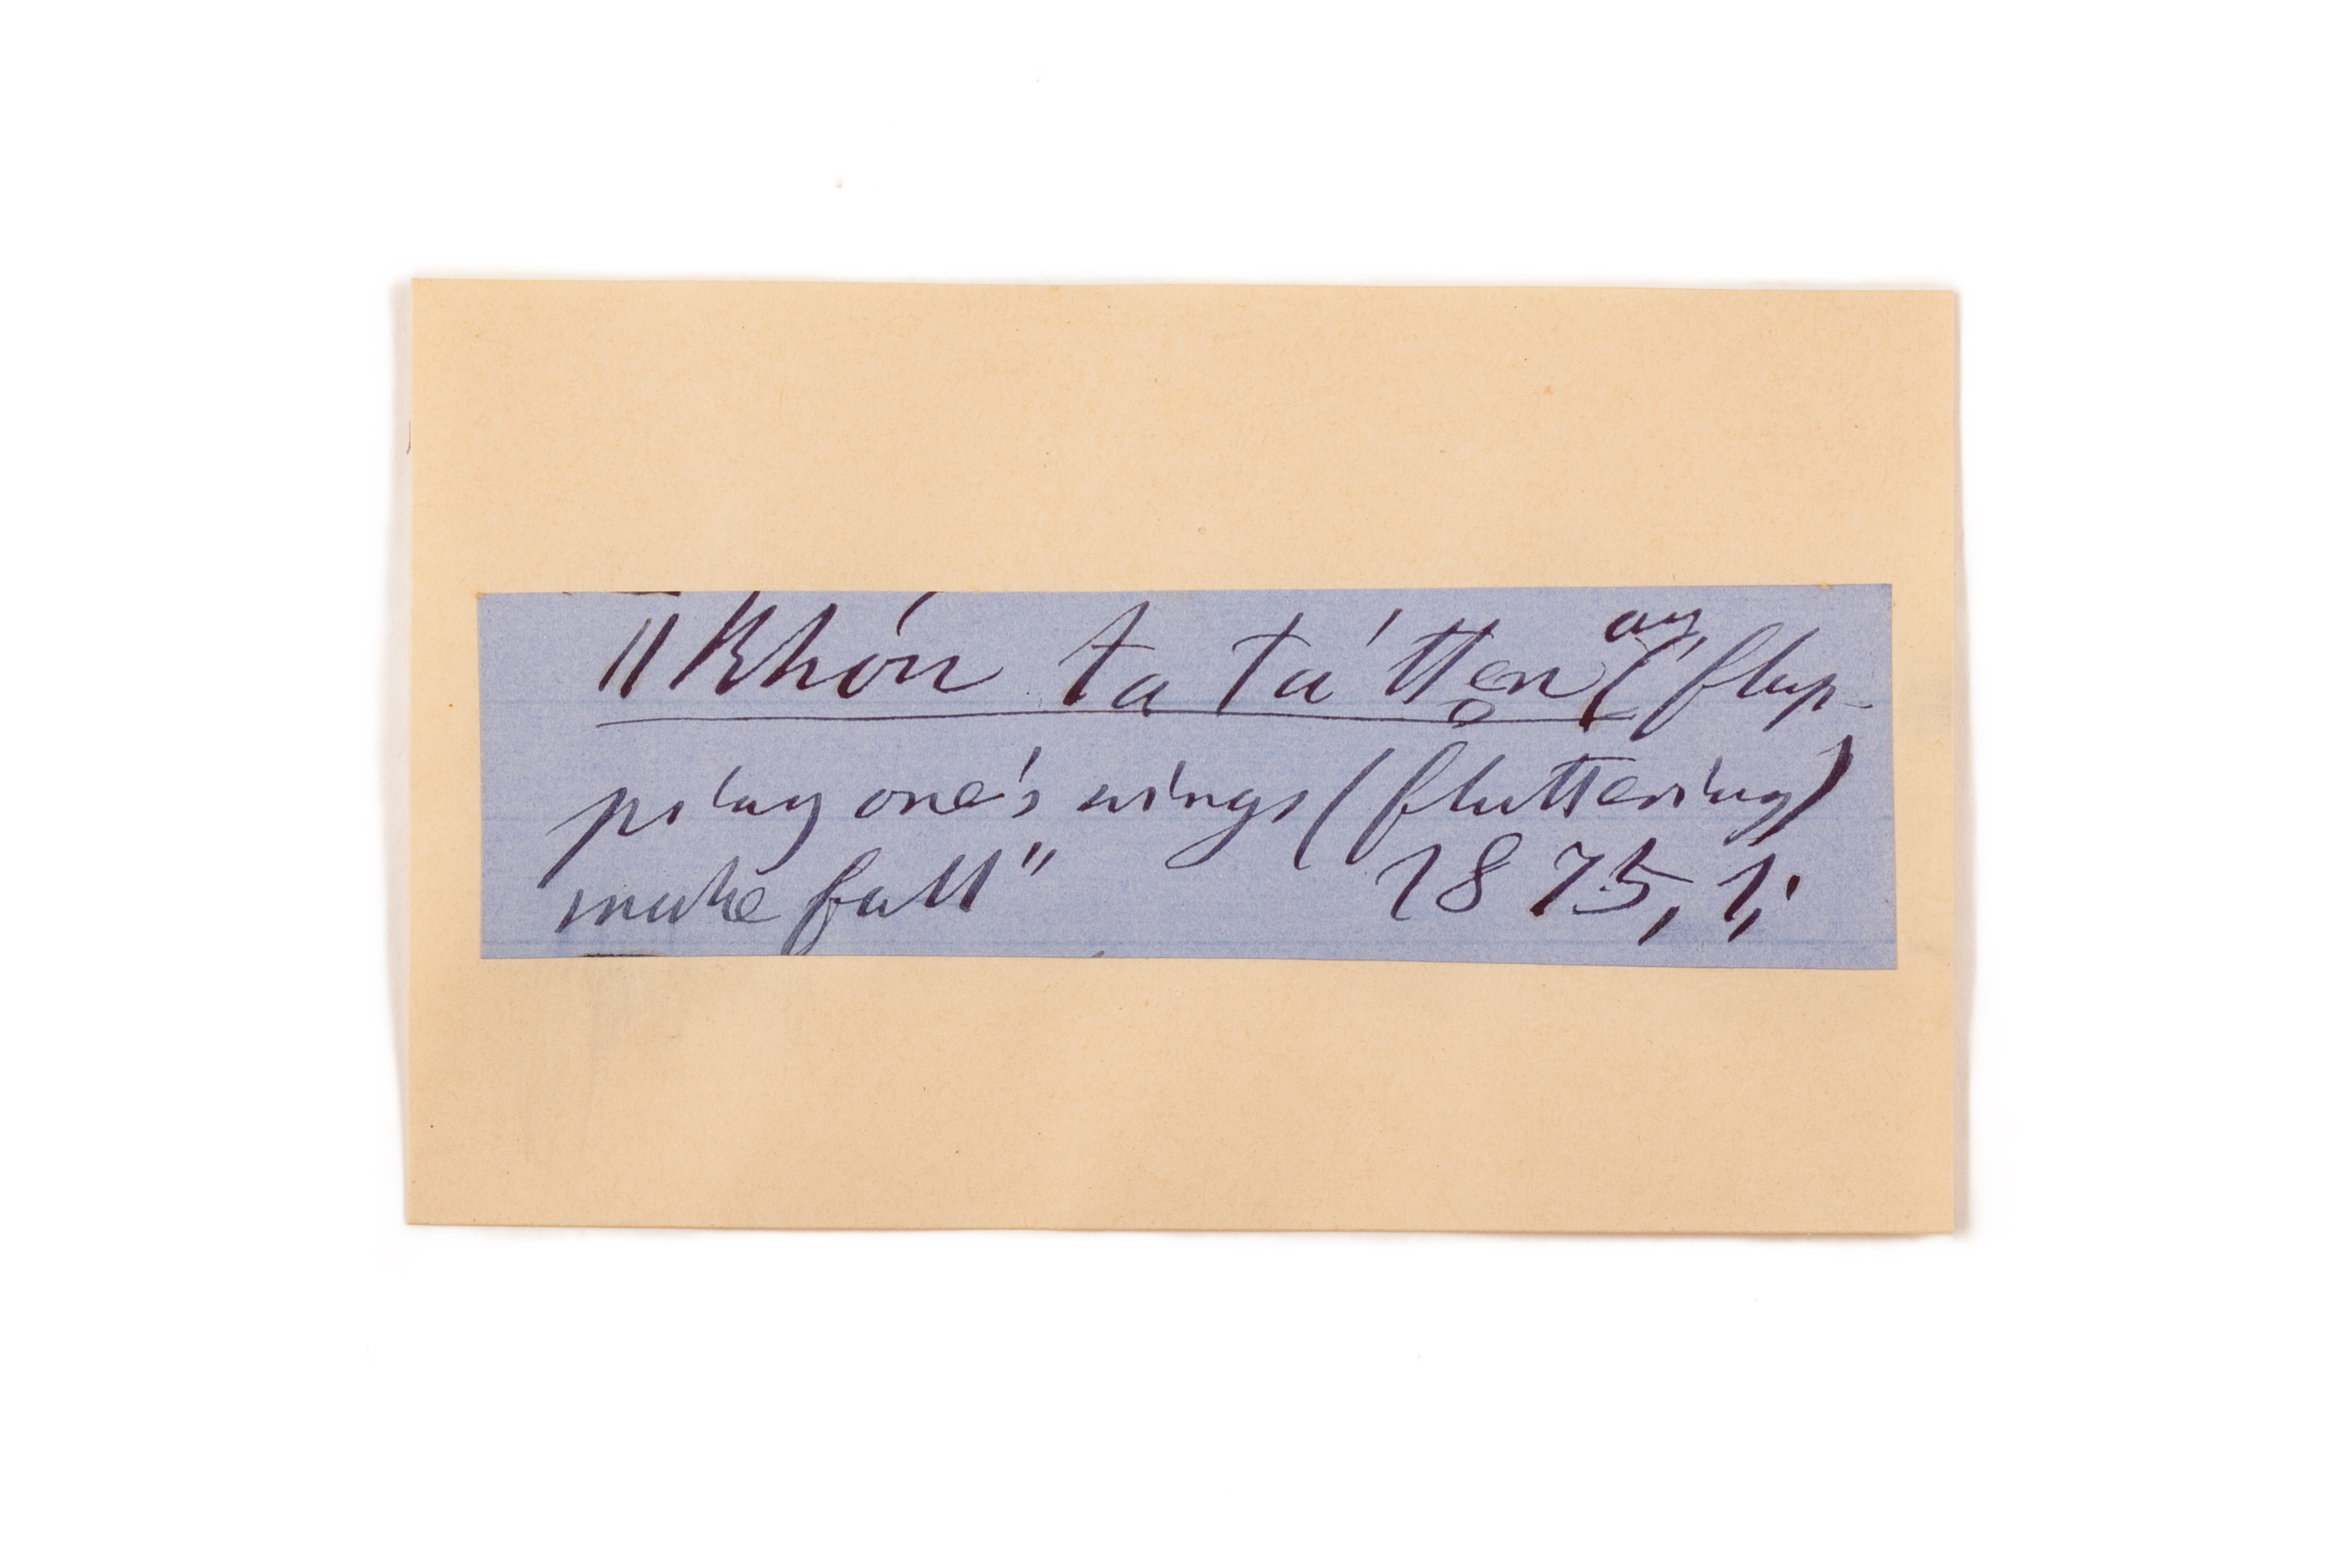 ‖khón ta tá tten̥ au ("flap-
ping one's wings (fluttering)
make fall" 1875, 1;